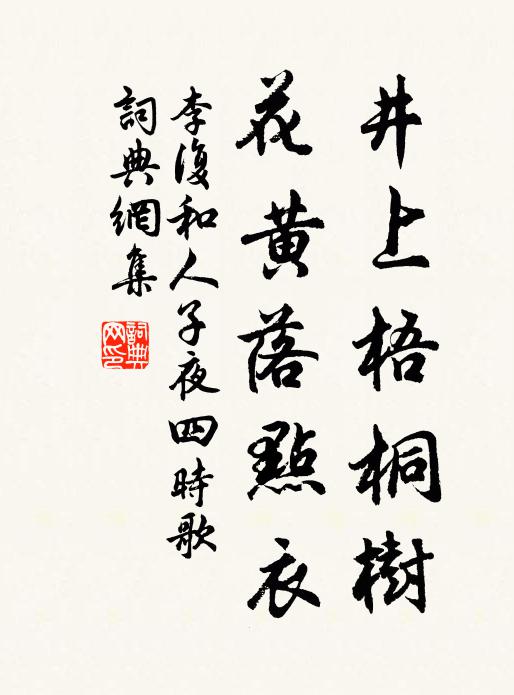 井上梧桐樹
花黄落點衣
李復和人子夜四時歌
詞典網集
詞典網印